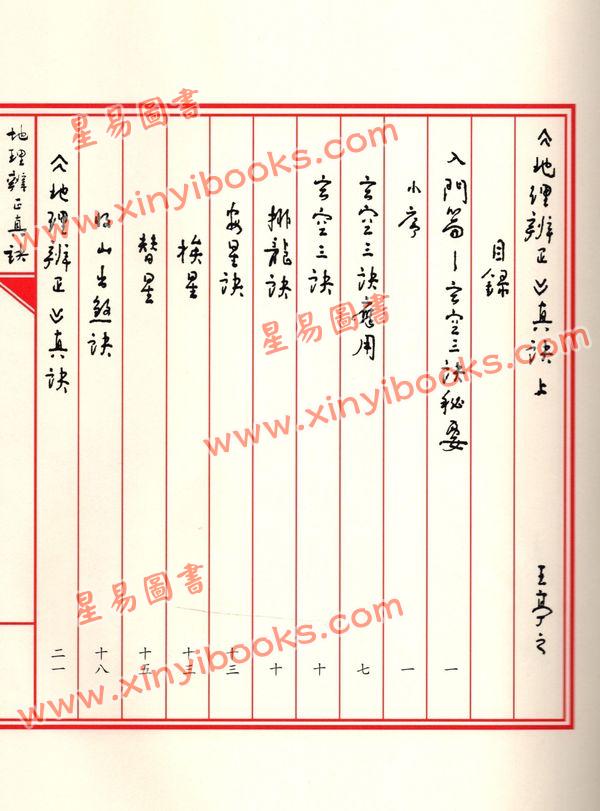 《地理辨正》真訣上 王亭之
目錄
入門篇—玄空三訣秘要 一
小序 一
玄空三訣應用 七
玄空三訣 十
排龍訣 十
安星訣 十三
挨星 十三
替星 十五
山出煞訣 十八
《地理辨正》真訣 二一
地理辨正真訣
星易圖書
www.xinyibooks.com
星易圖書
www.xinyibooks.com
星易圖書
www.xinyibooks.com